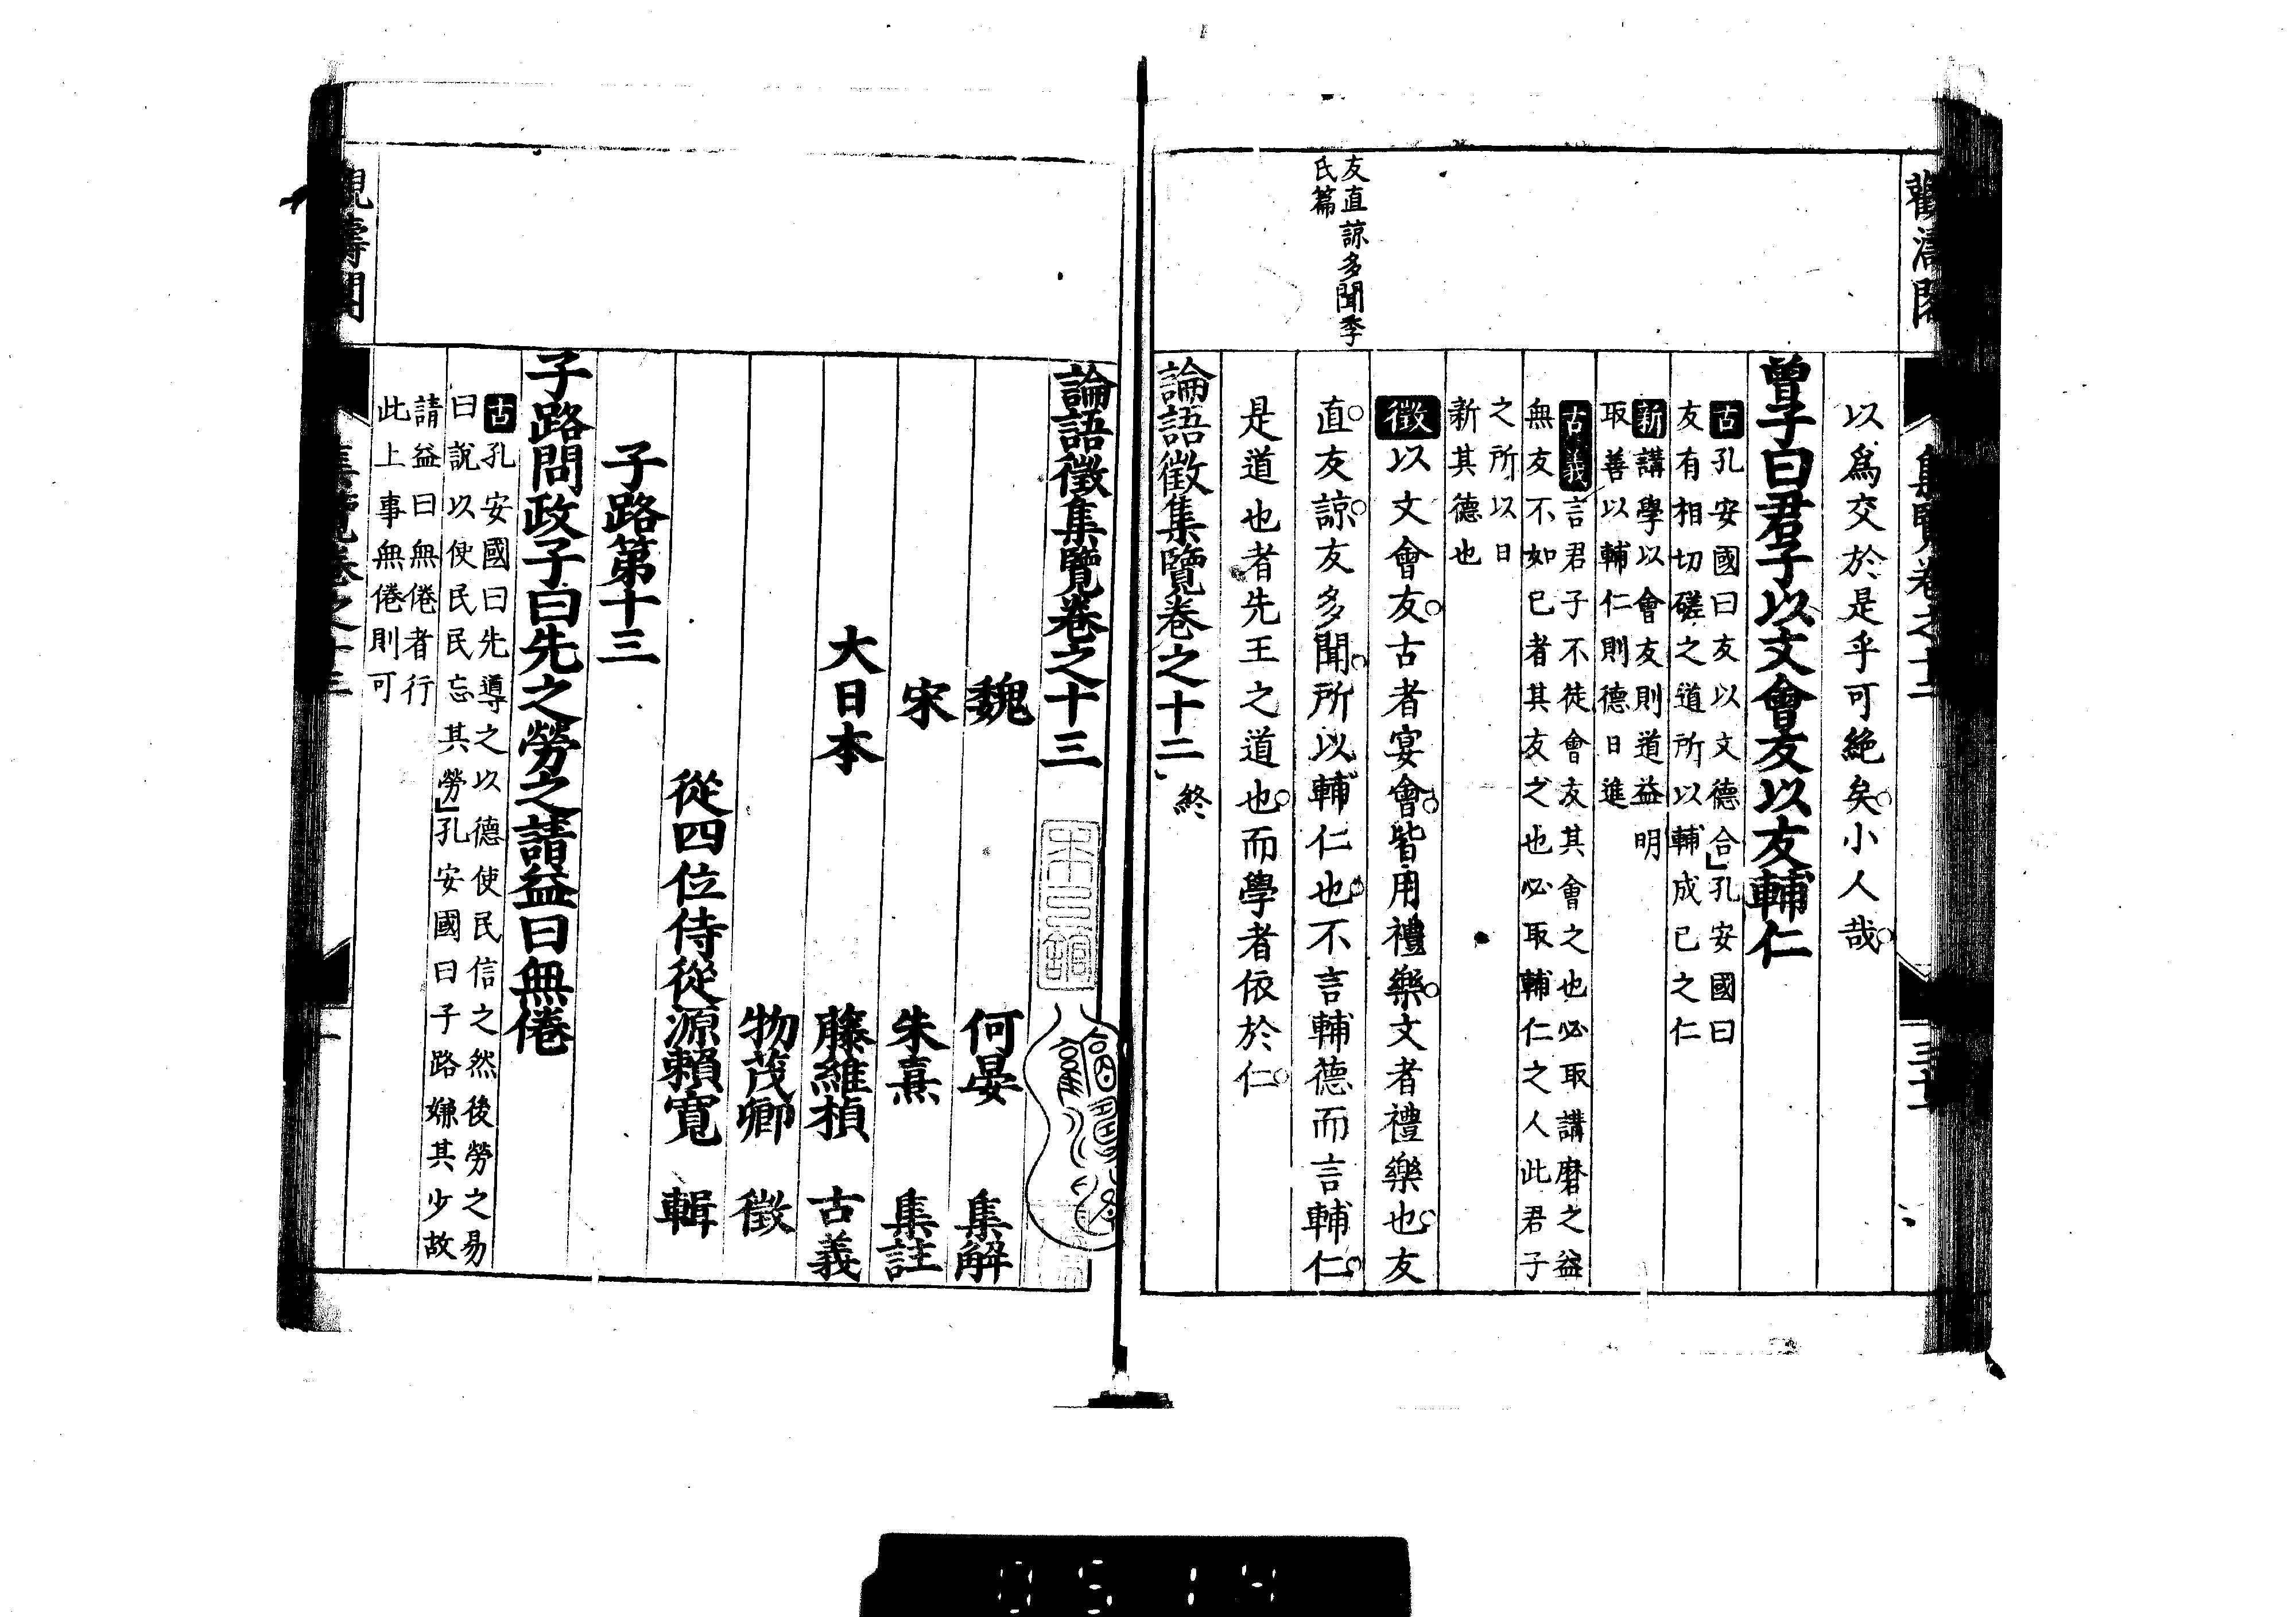 友直諒多聞季
氏篇
以爲交於是乎可絶矣小人哉
曾子曰君子以文會友以友輔仁
古孔安國曰友以文德合孔安國曰
友有相切磋之道所以輔成已之仁
新講學以會友則道益明
取善以輔仁則德日進
古義言君子不徒會友其會之也必取講磨之益
無友不如已者其友之也必取輔仁之人此君子
之所以日
新其德也
徵以文會友古者宴會皆用禮樂文者禮樂也友
直友諒友多聞所以輔仁也不言輔德而言輔仁
是道也者先王之道也而學者依於仁
論語徵集覽卷之十二終
論語徵集覽卷之十三
魏 何晏 集解
宋 朱熹 集註
大日本 藤維楨 古義
物茂卿 徵
從四位侍從源賴寬 輯
子路第十三
子路問政子曰先之勞之請益曰無倦
古孔安國曰先導之以德使民信之然後勞之易
曰說以使民民忘其勞孔安國曰子路嫌其少故
請益曰無倦者行
此上事無倦則可